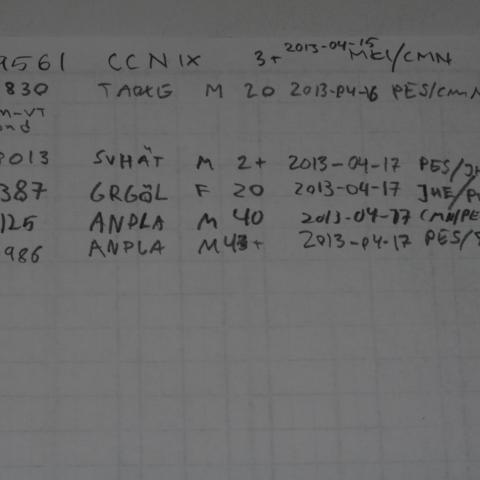 9561 CCNIX 3+ 2013-04-15 MKI/CMN
830 TAOKG M 20 2013-04-16 PES/CMN
m-VT
ond
9013 SVHÄT M 2+ 2013-04-17 PES/JH
387 GRGÖL F 20 2013-04-17 JHE/
125 ANPLA M 40 2013-04-17 CMN/PE
986 ANPLA M 43+ 2013-04-17 PES/